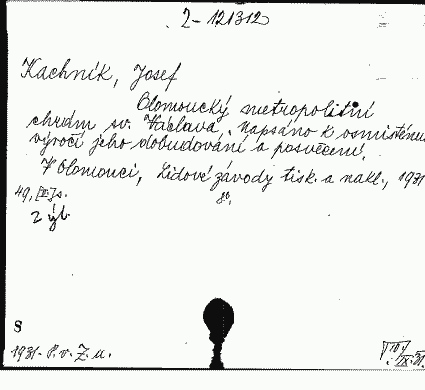 2-121312
Kachník, Josef
Olomoucký metropolitní
chrám sv. Václava. Napsáno k osmisténu
výročí jeho dobudování a posvěcení.
V Olomouci, Lidové závody tisk. a nakl., 1931
49, [III] s. 8°.
2 výt.
S
1931. P. v. Z. u.